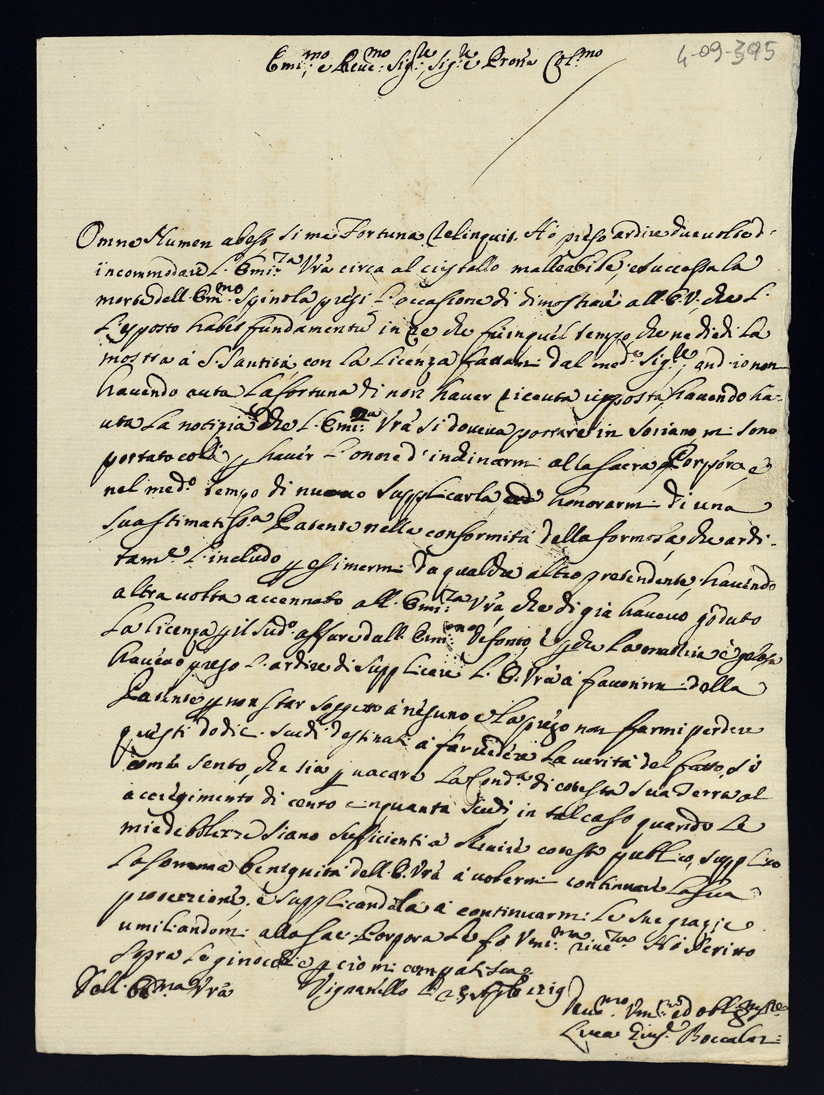 4-09-395
Emi:mo e Reve:mo Sig:re Sig:re e Prone Col:mo
Omne Numen abest si me Fortuna relinquit. Hò preso ardire due volte d'
incommodare L'Emi:za Vrà circa al cristallo malleabile, e successa la
morte dell'Em:mo Spinola, presi L'occasione di dimostrare all'E.V. che L'
L'esposto habet fundamentũ in re che fù in quel tempo, che ne diedi La
mostra à S. Santità con La Licenza dal med:o Sig:re, ond'io non
havendo auta La fortuna di non haver riceuta risposta, havendo ha-
uta La notizia che L'Emi:na Vrà si doveva portare in Soriano, mi sono
portato colà p haver L'onore d'inchinarmi alla Sacra Porpora, e
nel med:o tempo di nuovo supplicarla honorarmi di una
sua stimatissa Patente nella conformità della formola, che ardi-
tam:e L'includo p esimermi da qualche altro pretendente, havendo
altra volta accennato all'Emi:za Vrà, che di già havevo goduto
La Licenza p il sud:o affare dall'Emi:mo Defonto, e p che La materia è gelosa
havevo preso L'ardire di supplicare L'E. Vrà à favorirmi della
Patente p non star soggetto à nesuno e La prego non farmi perdere
questi dodici scudi destinati à far vedere La verità del fatto, si
come sento, che sia p vacare La Cond:a di cotesta Sua Terra al
accrescimento di cento cinquanta scudi in tal caso quando Le
mie debolezze siano sufficienti a servire cotesto publico, supplico
La somma benignità dell'E. Vrà à volermi continuare La sua
protezzione, e supplicandola à continuarmi Le sue grazie
umiliandomi alla Sac. Porpora Le fò Umi:ma rive:za Hò scritto
sopra Le ginocchie p ciò mi compatisca
Dell'E:ma Vrà Vignanello Li 25
Boccalar: